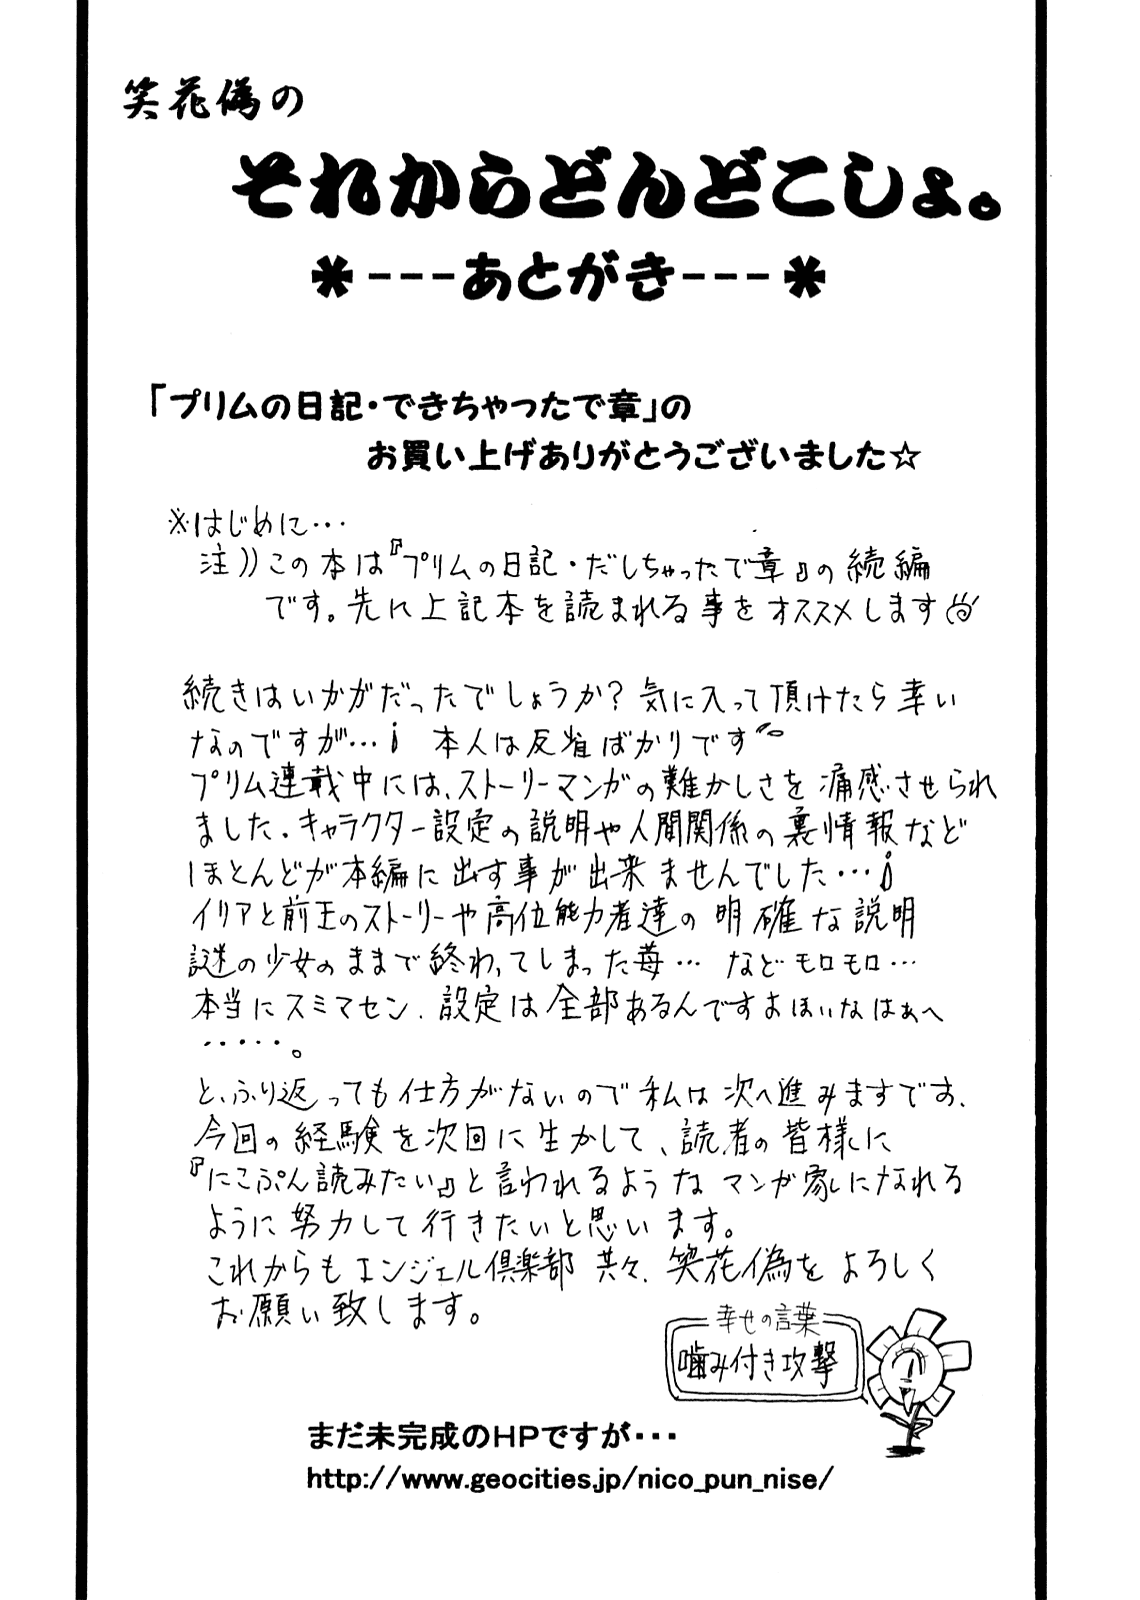 笑花偽の
それからどんどこしょ。
*---あとがき---*
「プリムの日記・できちゃったで章」の
お買い上げありがとうございました☆
※はじめに…
注))この本は『プリムの日記・だしちゃったで章』の続編
です。先に上記本を読まれる事をオススメします
続きはいかがだったでしょうか?気に入って頂けたら幸い
なのですが…本人は反省ばかりです
プリム連載中には、ストーリーマンガの難かしさを痛感させられ
ました。キャラクター設定の説明や人間関係の裏情報など
ほとんどが本編に出す事が出来ませんでした…
イリアと前王のストーリーや高位能力者達の明確な説明
謎の少女のままで終わってしまった苺…などモロモロ…
本当にスミマセン、設定は全部あるんですよ
・・・・・。
と、ふり返っても仕方がないので私は次へ進みますです、
今回の経験を次回に生かして、読者の皆様に
『にこぷん読みたい』と言われるようなマンガ家になれる
ように努力して行きたいと思います。
これからもエンジェル倶楽部共々、笑花偽をよろしく
お願い致します。
幸せの言葉
噛み付き攻撃
まだ未完成のHPですが・・・
http://www.geocities.jp/nico_pun_nise/